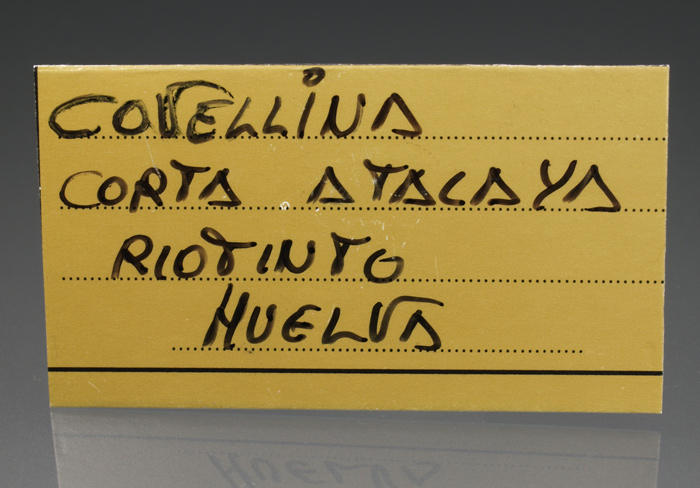 COVELLINA
CORTA ATALAYA
RIOTINTO
HUELVA